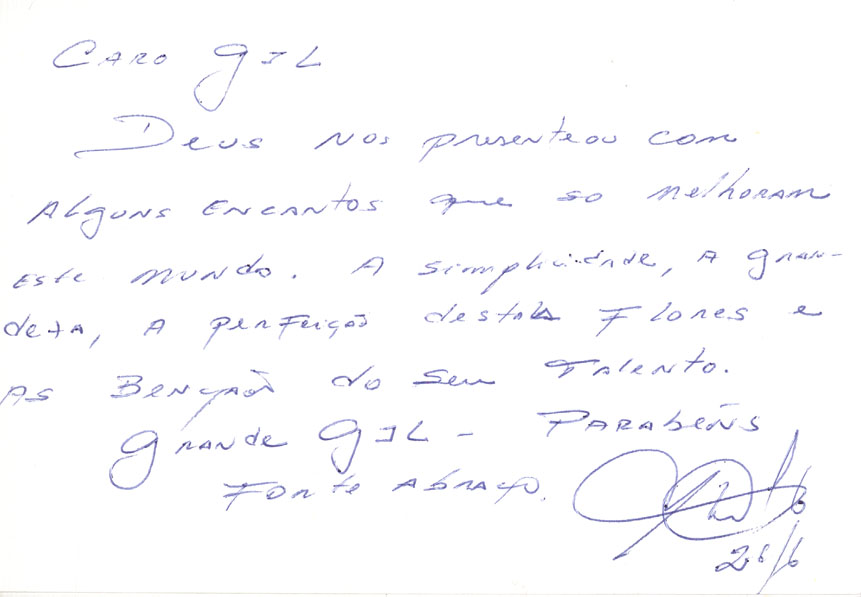 CARO GIL
DEUS NOS presenteou com
ALGUNS ENCANTOS que so melhoram
este mundo. A simplicidade, A GRAN-
deza, A perfeição destas Flores e
AS BENÇÃOS do seu TALENTO.
GRANDE GIL - PARABÉNS
FORTE ABRAÇO.